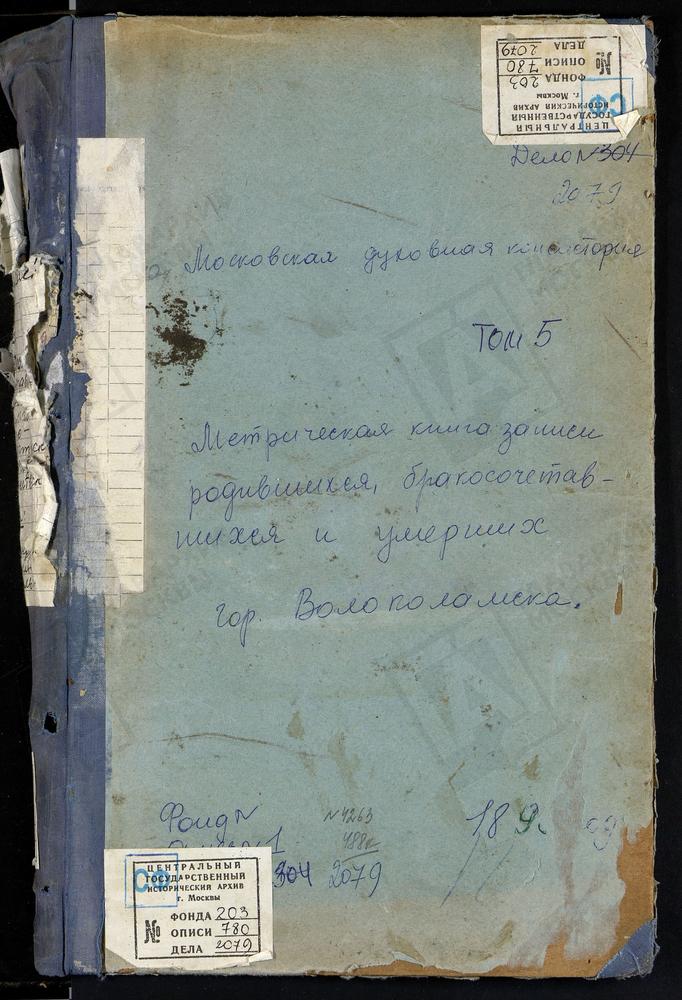 ЦЕНТРАЛЬНЫЙ
ГОСУДАРСТВЕННЫЙ
ИСТОРИЧЕСКИЙ АРХИВ
г. Москвы
СФ
№
ФОНДА 203
ОПИСИ 780
ДЕЛА 2079
Дело № 304
2079
Московская духовная консистория
Том 5
Метрическая книга записи
родившихся, бракосочетав-
шихся и умерших
гор. Волоколамска.
Фонд №
№ 4263
189
304 2079
ЦЕНТРАЛЬНЫЙ
ГОСУДАРСТВЕННЫЙ
ИСТОРИЧЕСКИЙ АРХИВ
г. Москвы
СФ
№
ФОНДА 203
ОПИСИ 780
ДЕЛА 2079